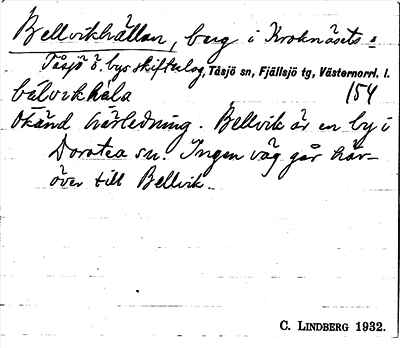 Bellvikhällan, berg i Kroknäsets =
Tåsjö ö. bys skifteslag, Tåsjö sn, Fjällsjö tg, Västernorrl. l.
bälvikhäla 154
Okänd härledning. Bellvik är en by i
Dorotea sn. Ingen väg går här-
över till Bellvik.
C. LINDBERG 1932.